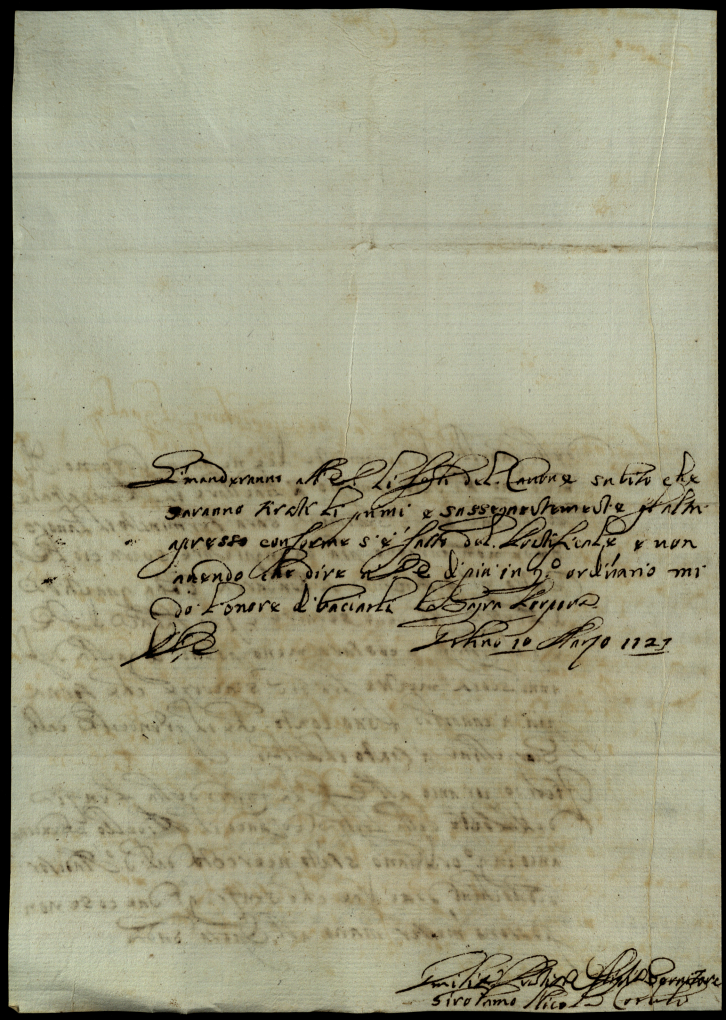 Si manderanno all' E. S. li fogli del Canone subito che
saranno tirati li primi e susseguentemente gl'altri
apresso conforme s'è fatto del Pontificale e non
auendo che dire a V. E. di più in q.o ordinario mi
do l'onore di baciarli la Sagra Porpora
Vrbino 10 Marzo 1727
Girolamo Nicolò